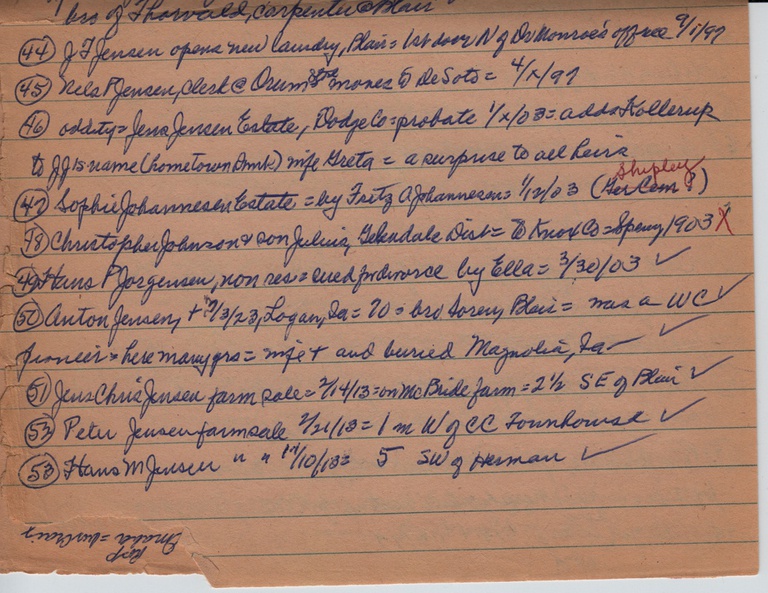 bro of Thorvald, carpenter @ Blair
(44) J F Jensen opens new laundry, Blair = 1st door N of Dr Monroe's office 9/1/97
(45) Nels P Jensen, Clerk @ Orum moves to DeSoto = 4/x/97
(46) oddity = Jens Jensen Estate, Dodge Co = probate 1/x/03 = adds Kollerup
to JJ's name (hometown Dmk) wife Greta = a surprise to all heirs
Shipley
(47) Sophie Johannesen Estate = by Fritz A Johannesen = 1/12/03 (Ger Cem ?)
(48) Christopher Johnson & son Julius, Glendale Dist = to Knox Co = Spring 1903 X
(49) Hans P Jorgensen, non res = sued for divorce by Ella = 3/30/03 ✓
(50) Anton Jensen, + 9/3/23, Logan, Ia = 70 = bro Soren, Blair = was a WC ✓
Pioneer = here many yrs = wife + and buried Magnolia, Ia — ✓
(51) Jens Chris Jensen farm sale = 2/14/13 = on McBride farm = 2 1/2 SE of Blair ✓
(52) Peter Jensen farm sale 2/21/13 = 1 m W of CC Townhouse ✓
(53) Hans M Jensen " " 10/13 = 5 SW of Herman ✓
Omaha